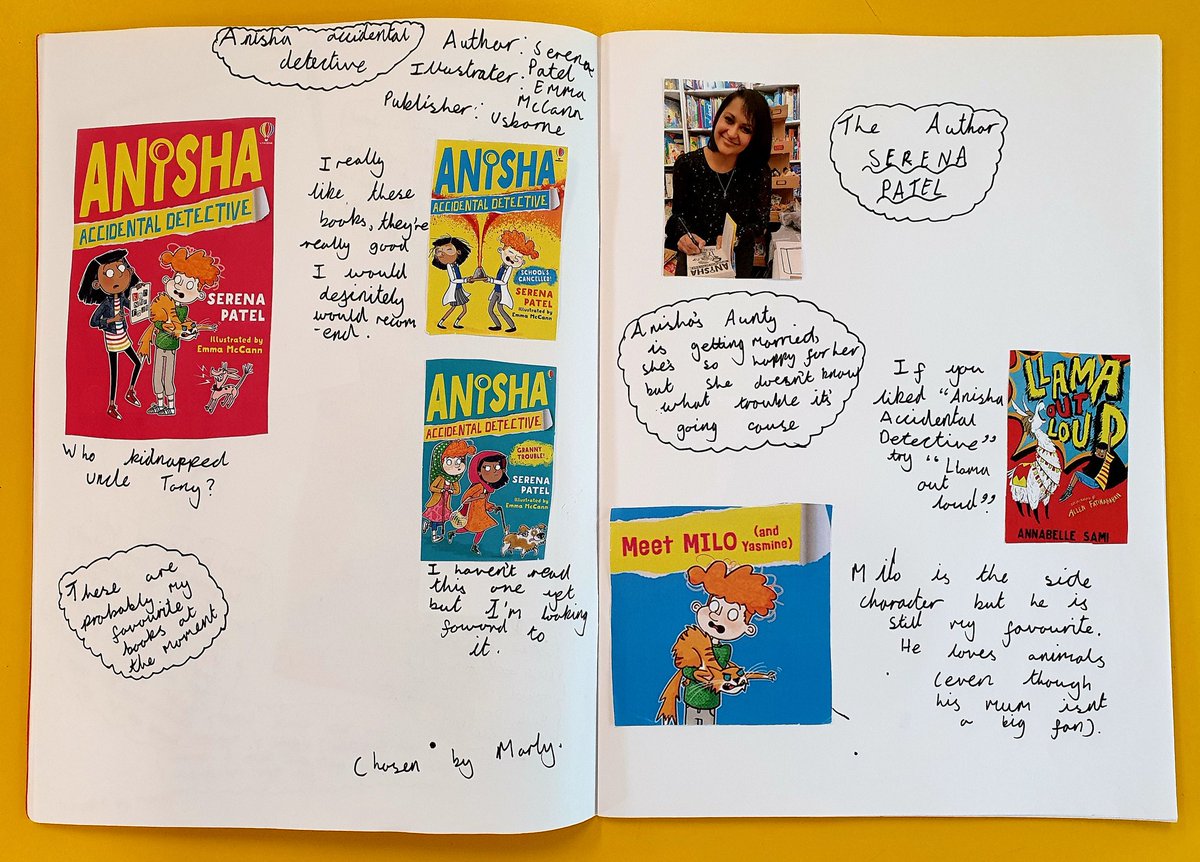 Anisha accidental
detective
Author: Serena
Patel
Illustrater: Emma
McCann
Publisher: Usborne
ANISHA
ACCIDENTAL DETECTIVE
SERENA
PATEL
Illustrated by
Emma McCann
Who kidnapped
uncle Tony?
I really
like these
books, they're
really good
I would
definitely
would recom
-end.
ANISHA
ACCIDENTAL DETECTIVE
SCHOOL'S
CANCELLED!
SERENA
PATEL
Illustrated by
Emma McCann
ANISHA
ACCIDENTAL DETECTIVE
GRANNY
TROUBLE!
SERENA
PATEL
Illustrated by
Emma McCann
I haven't read
this one yet
but I'm looking
foward to
it.
These are
probably my
favourite
books at
the moment
Chosen by Marly.
ANISHA
The Author
SERENA
PATEL
Anisha's Aunty
is getting married,
she's so happy for her
but she doesn't know
what trouble it's
going cause
If you
liked "Anisha
Accidental
Detective"
try "Llama
out
loud".
LLAMA
OUT
LOUD
ANNABELLE SAMI
Meet MILO (and
Yasmine)
Milo is the side
character but he is
still my favourite.
He loves animals
(even though
his mum isnt
a big fan).